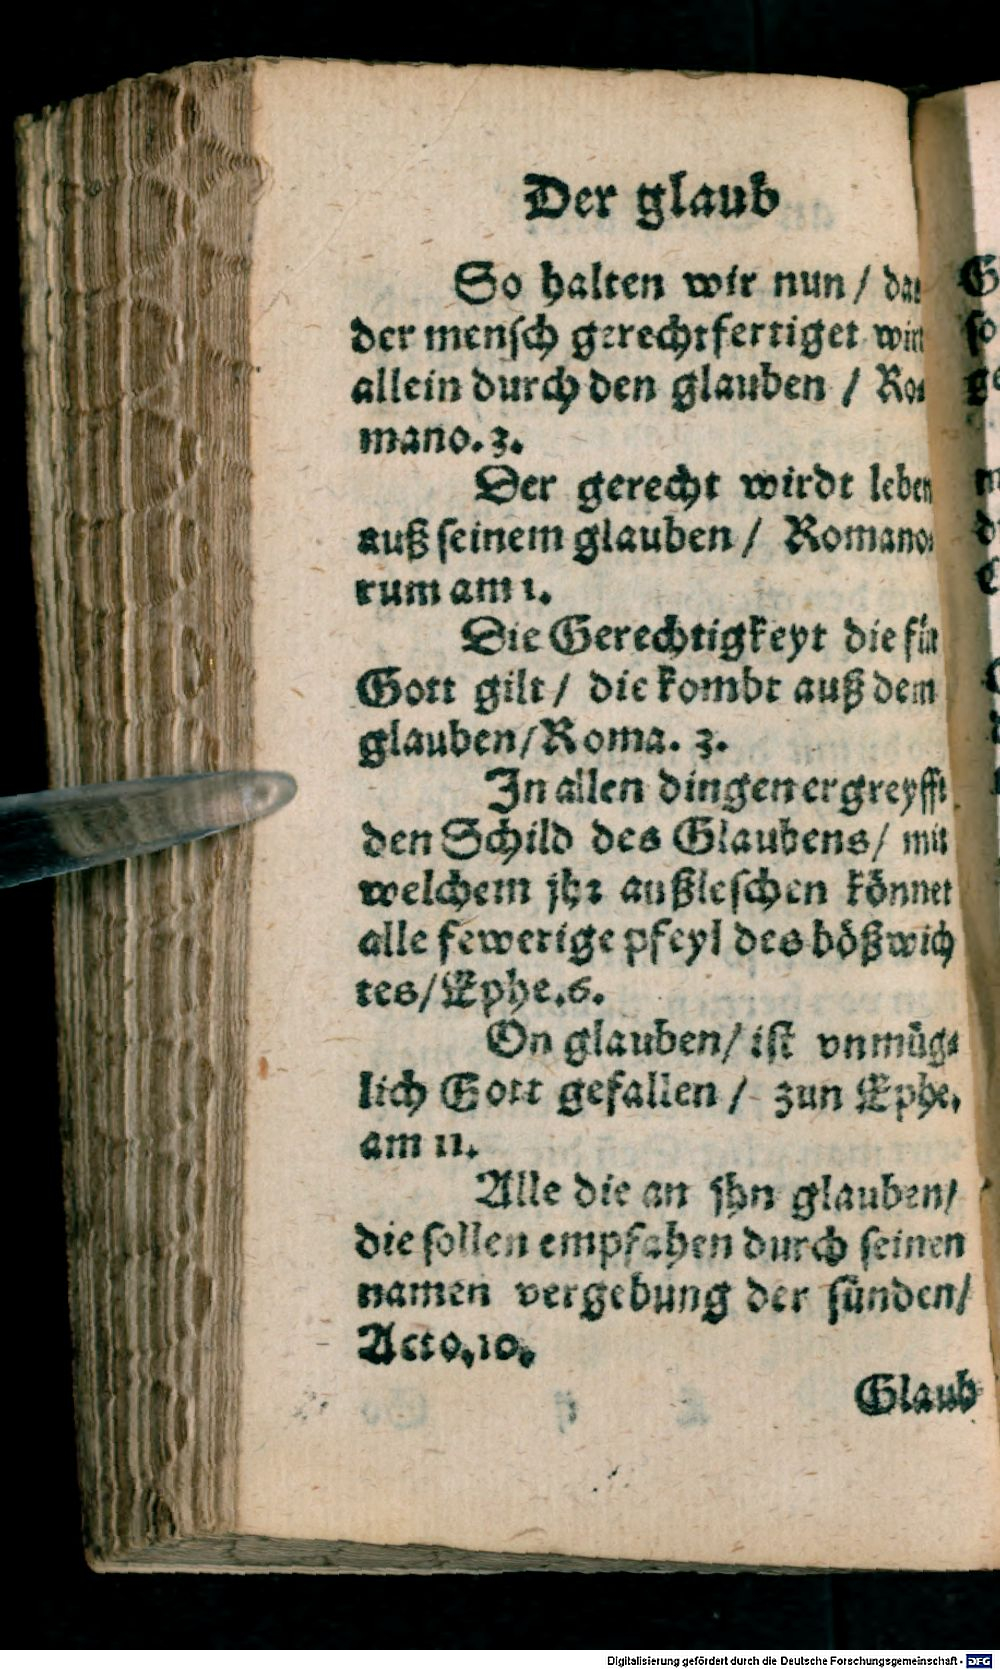 Der glaub
So halten wir nun / da
der mensch gerechtfertiget wirt
allein durch den glauben / Ro⸗
mano. 3.
Der gerecht wirdt leben
auß seinem glauben / Romano⸗
rum am 1.
Die Gerechtigkeyt die für
Gott gilt / die kombt auß dem
glauben / Roma. 3.
In allen dingen ergreyfft
den Schild des Glaubens / mit
welchem jhr außleschen könnet
alle fewerige pfeyl des bößwich
tes / Ephe. 6.
On glauben / ist vnmüg⸗
lich Gott gefallen / zun Ephe.
am 11.
Alle die an jhn glauben /
die sollen empfahen durch seinen
namen vergebung der sünden /
Acto. 10.
Glaub
Digitalisierung gefördert durch die Deutsche Forschungsgemeinschaft - DFG